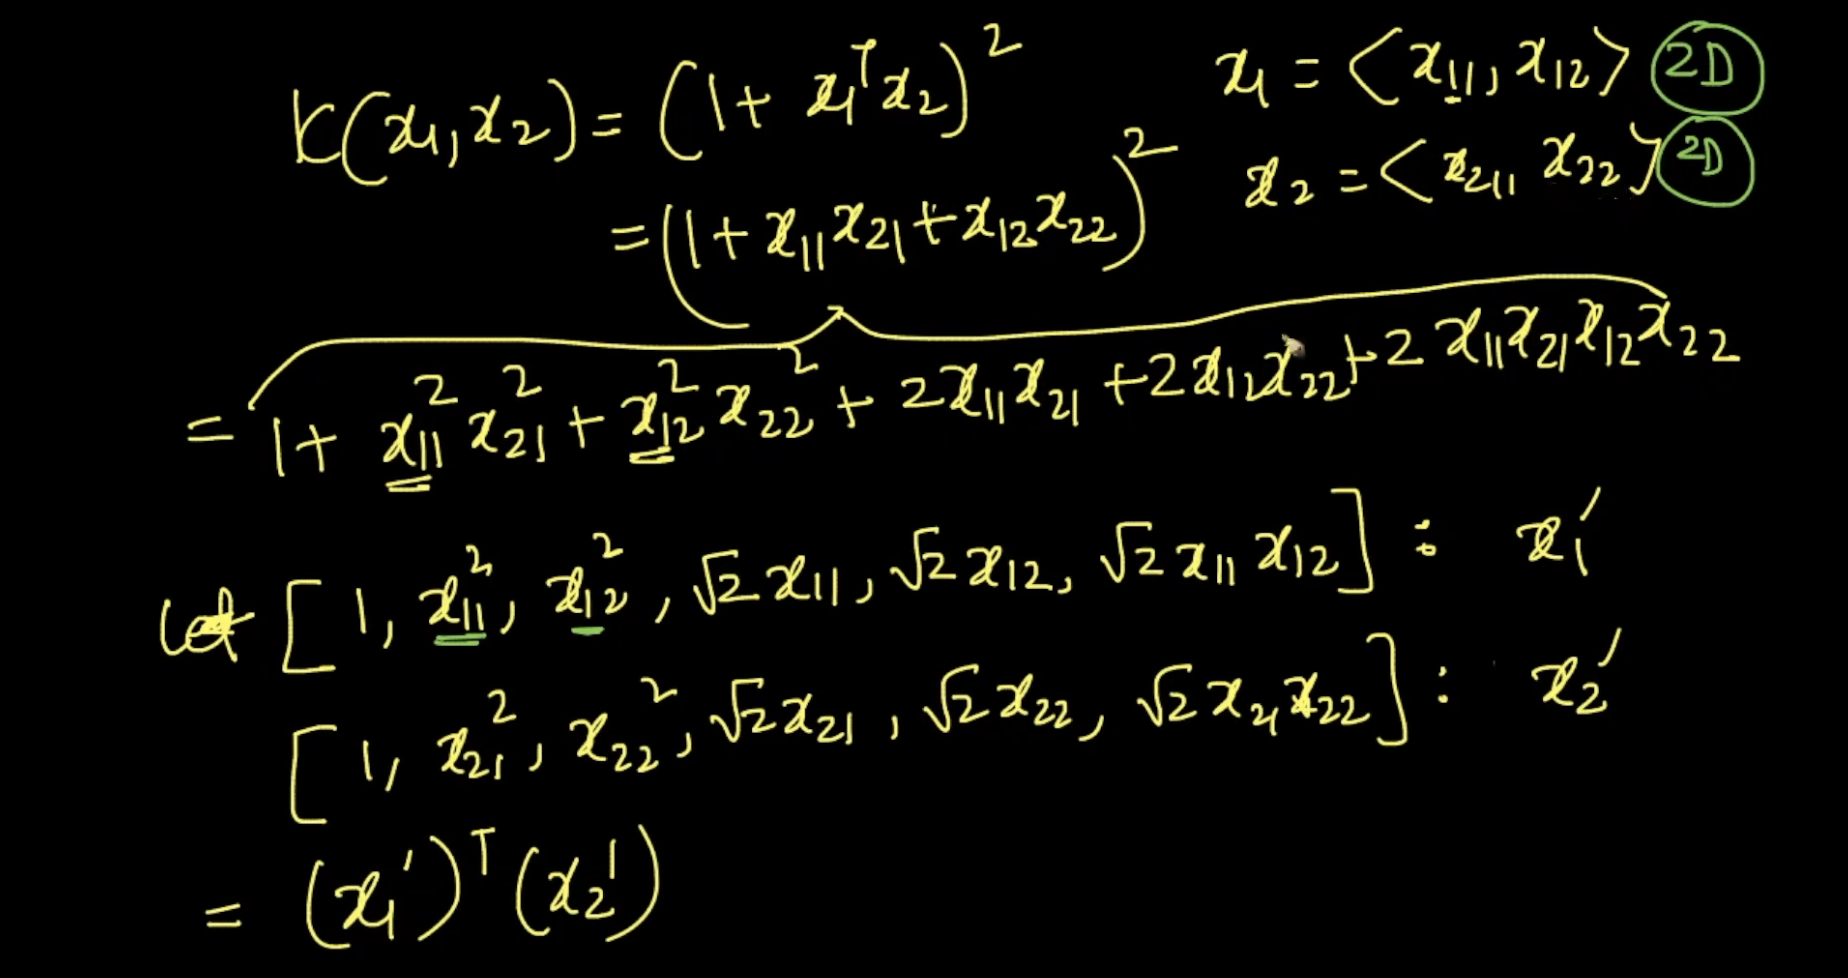 K(x₁, x₂) = (1 + x₁ᵀx₂)²
x₁ = <x₁₁, x₁₂> 2D
x₂ = <x₂₁, x₂₂> 2D
= (1 + x₁₁x₂₁ + x₁₂x₂₂)²
= 1 + x₁₁²x₂₁² + x₁₂²x₂₂² + 2x₁₁x₂₁ + 2x₁₂x₂₂ + 2x₁₁x₂₁x₁₂x₂₂
let [1, x₁₁², x₁₂², √2x₁₁, √2x₁₂, √2x₁₁x₁₂] : x₁'
[1, x₂₁², x₂₂², √2x₂₁, √2x₂₂, √2x₂₁x₂₂] : x₂'
= (x₁')ᵀ(x₂')